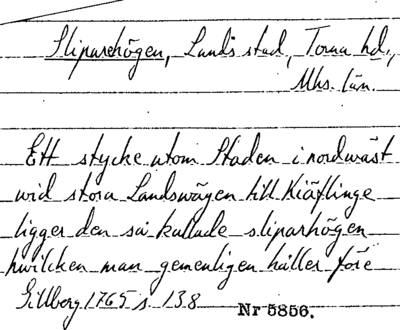 Sliparehögen, Lunds stad, Torna hd.,
Mhs. län.
Ett stycke utom Staden i nordwäst
wid stora Landswägen till Kiäflinge
ligger den så kallade sliparhögen
hwilcken man gemenligen håller före
Gillberg 1765 s. 138 Nr 5856.